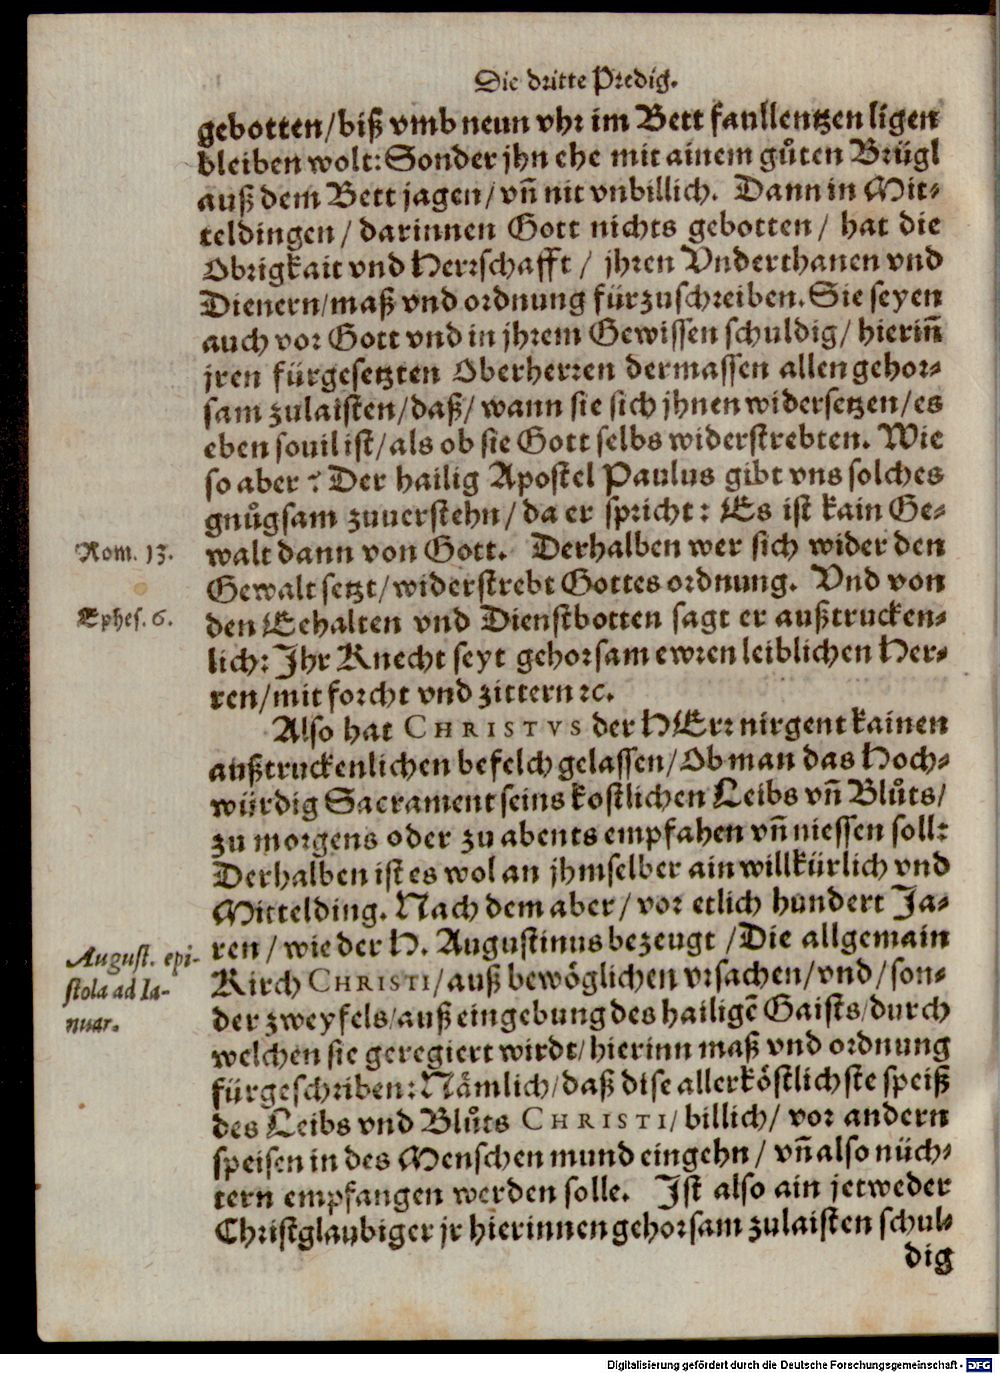 Die dritte Predig.
gebotten/biß vmb neun vhr im Bett faullentzen ligen
bleiben wolt: Sonder jhn ehe mit ainem gůten Brügl
auß dem Bett jagen/ vn̄ nit vnbillich. Dann in Mit⸗
teldingen/ darinnen Gott nichts gebotten/ hat die
Obrigkait vnd Herrschafft/ jhren Vnderthanen vnd
Dienern/maß vnd ordnung fürzuschreiben. Sie seyen
auch vor Gott vnd in jhrem Gewissen schuldig/ hierin̄
jren fürgesetzten Oberherren dermassen allen gehor⸗
sam zulaisten/daß/ wann sie sich jhnen widersetzen/es
eben souil ist/als ob sie Gott selbs widerstrebten. Wie
so aber? Der hailig Apostel Paulus gibt vns solches
gnůgsam zuuerstehn/ da er spricht: Es ist kain Ge⸗
Rom. 13.
walt dann von Gott. Derhalben wer sich wider den
Gewalt setzt/widerstrebt Gottes ordnung. Vnd von
Ephes. 6.
den Eehalten vnd Dienstbotten sagt er außtrucken⸗
lich: Jhr Knecht seyt gehorsam ewren leiblichen Her⸗
ren/mit forcht vnd zittern ꝛc.
Also hat CHRISTVS der HErr nirgent kainen
außtruckenlichen befelch gelassen/Ob man das Hoch⸗
würdig Sacrament seins kostlichen Leibs vn̄ Blůts/
zu morgens oder zu abents empfahen vn̄ niessen soll:
Derhalben ist es wol an jhmselber ain willkürlich vnd
Mittelding. Nach dem aber/ vor etlich hundert Ja⸗
August. epi-
stola ad Ia-
nuar.
ren/ wie der H. Augustinus bezeugt/Die allgemain
Kirch CHRISTI/auß bewöglichen vrsachen/vnd/son⸗
der zweyfels/auß eingebung des hailigē Gaists/durch
welchen sie geregiert wirdt/hierinn maß vnd ordnung
fürgeschriben: Nämlich/daß dise allerköstlichste speiß
des Leibs vnd Blůts CHRISTI/billich/ vor andern
speisen in des Menschen mund eingehn/ vn̄ also nüch⸗
tern empfangen werden solle. Jst also ain jetweder
Christglaubiger jr hierinnen gehorsam zulaisten schul⸗
dig
Digitalisierung gefördert durch die Deutsche Forschungsgemeinschaft - DFG